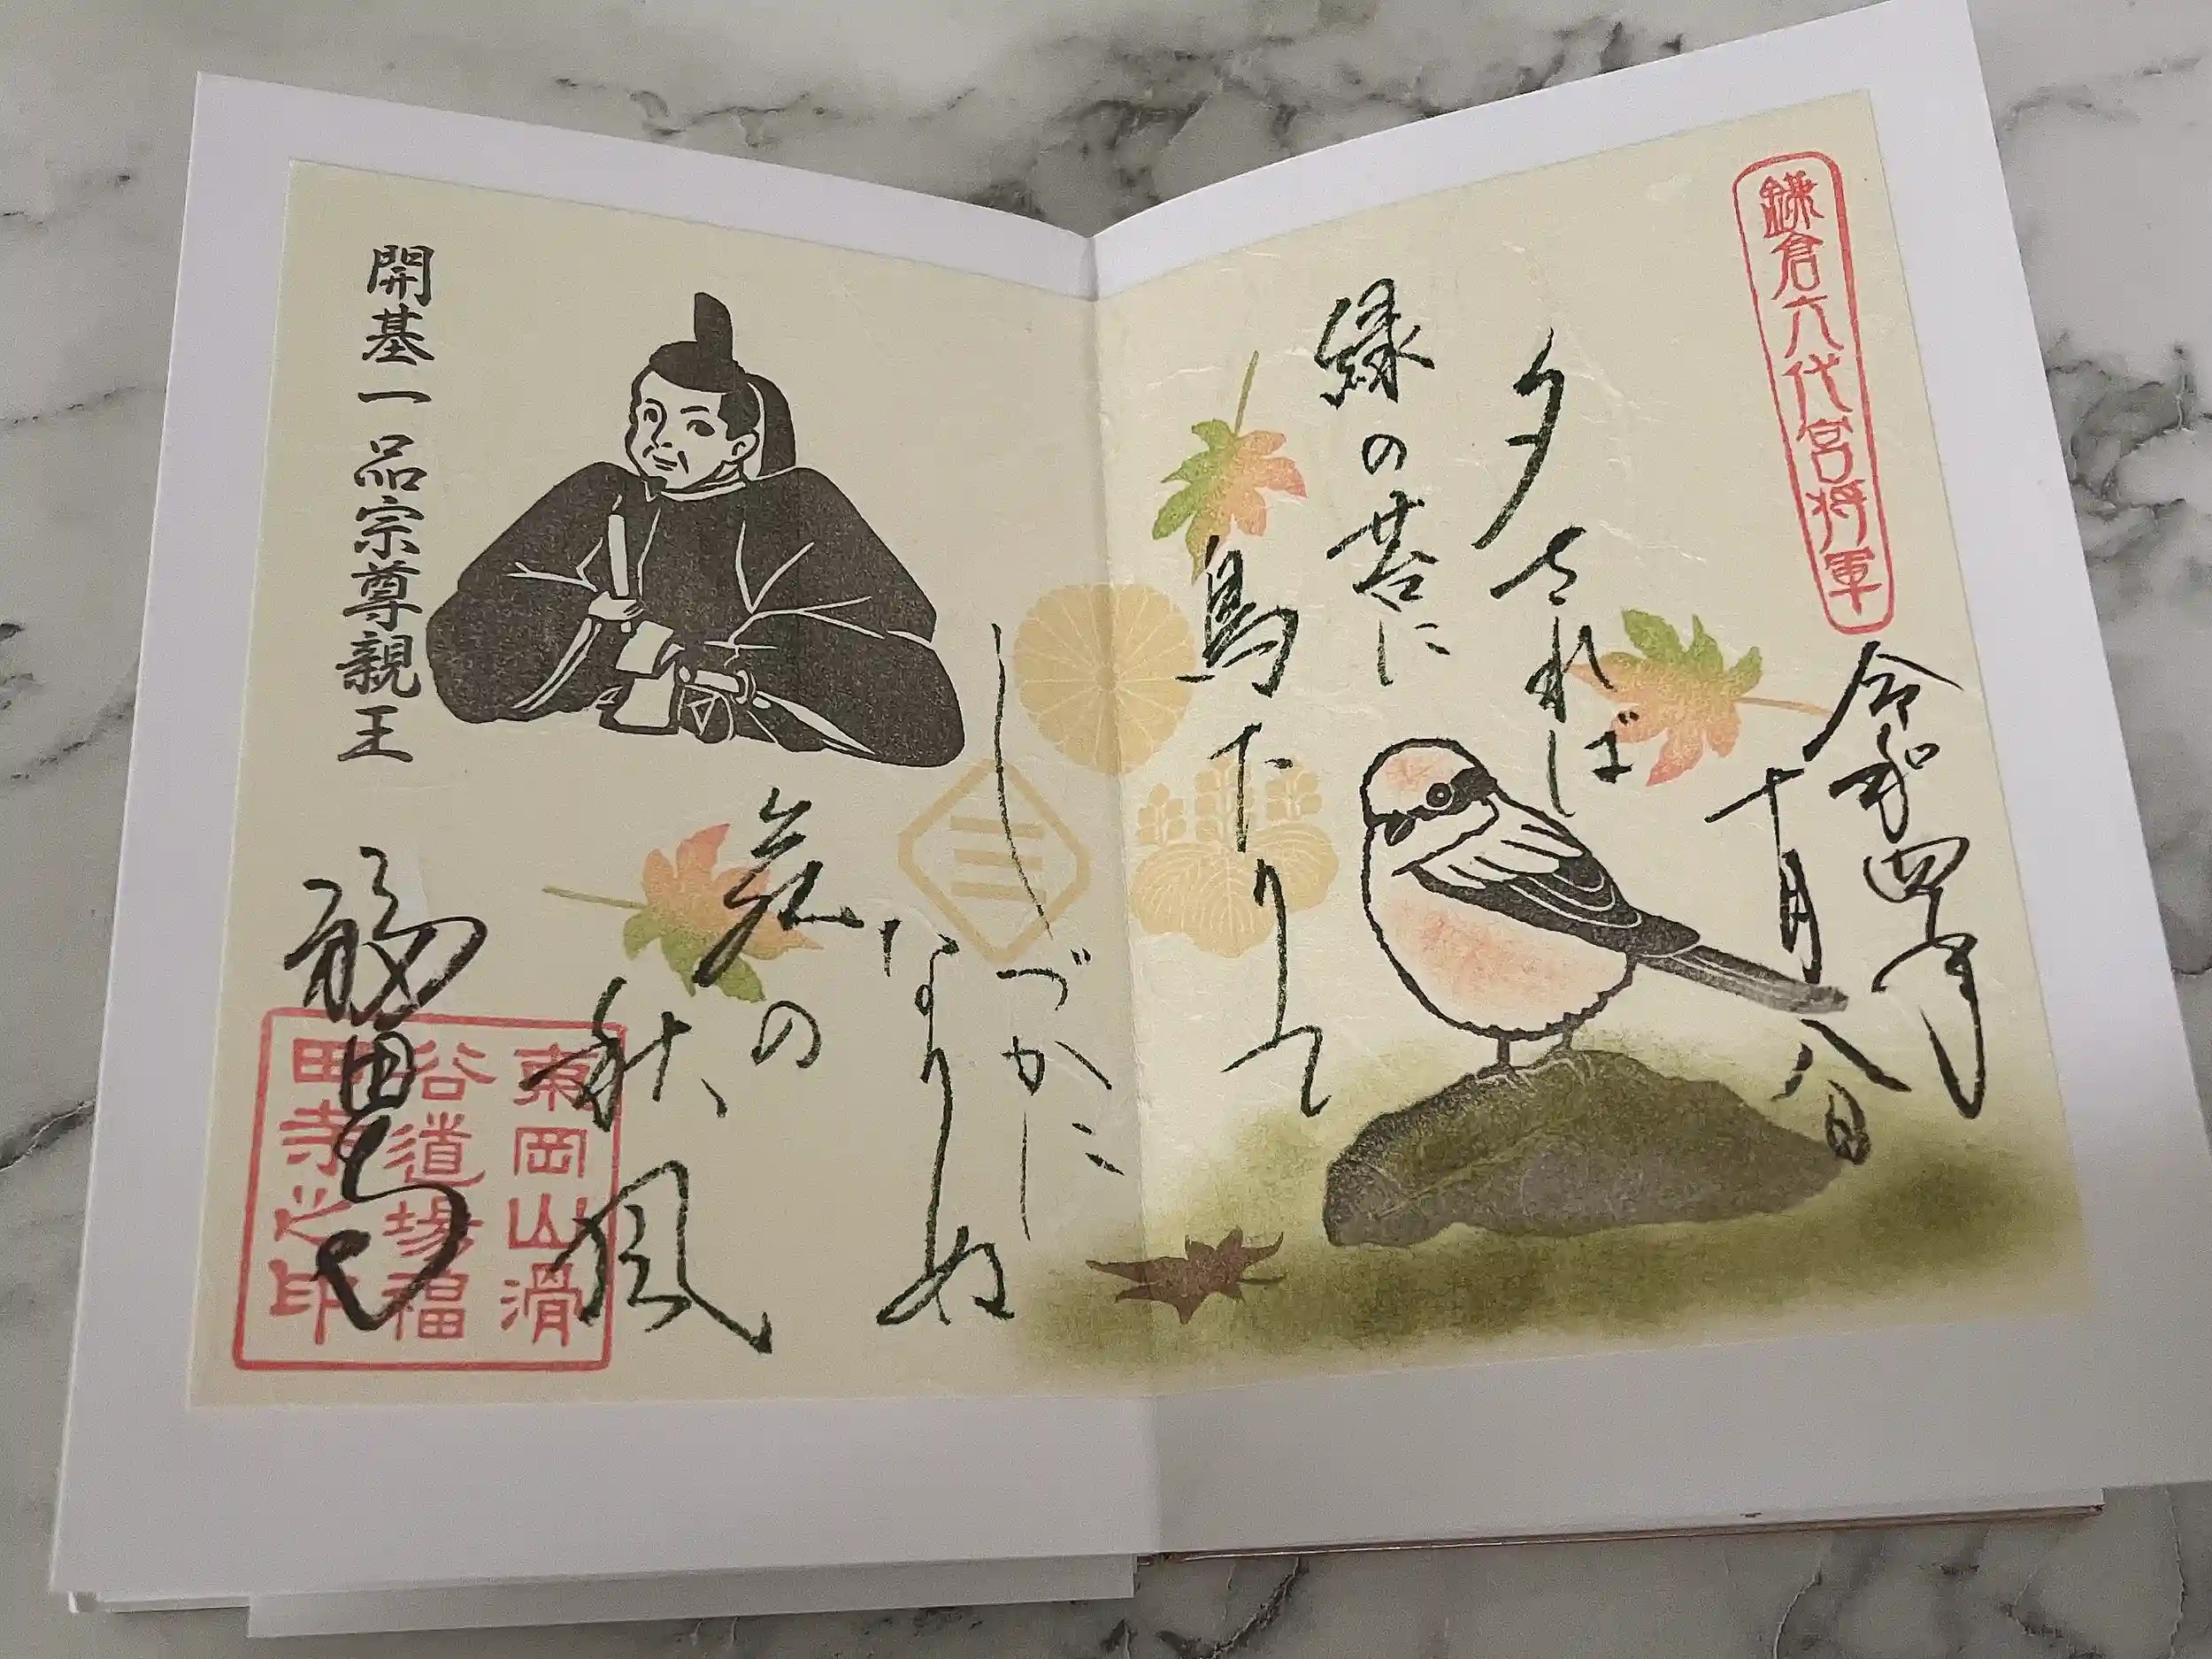 鎌倉六代宮将軍
令和四年
十月八日
夕されば
緑の苔に
鳥下りて
しづかに
なりぬ
苑の
秋風
開基一品宗尊親王
福田寺
東岡山滑
谷道場福
田寺之印